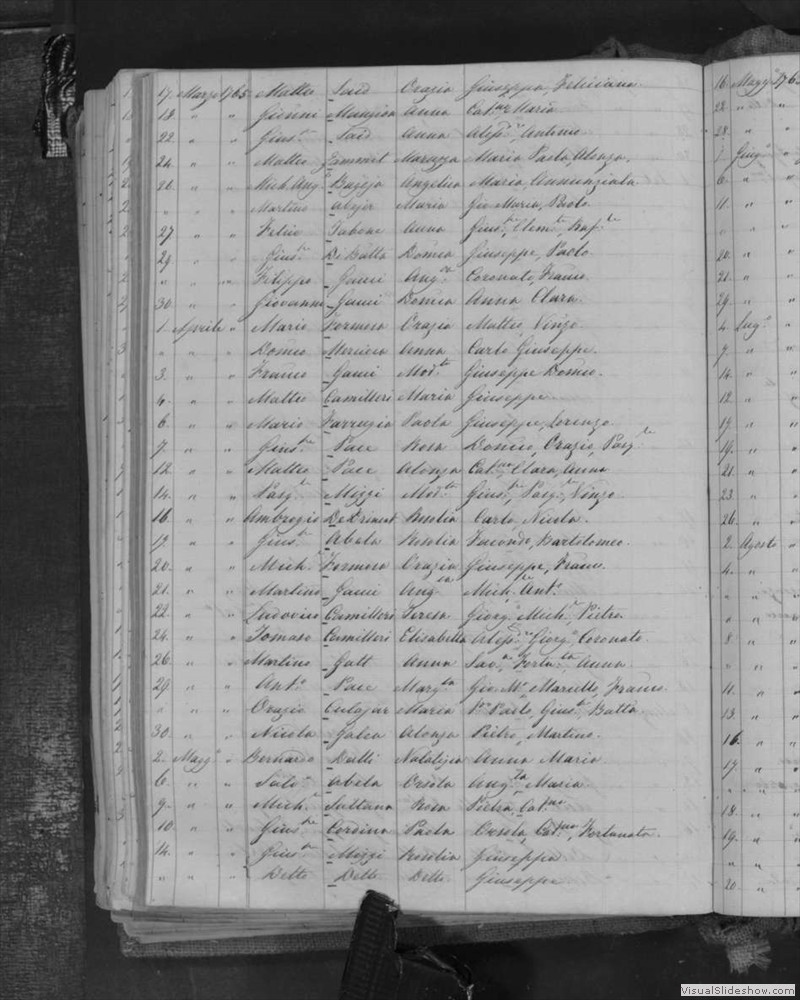 17. Marzo 1765 Matteo Said Orazia Giuseppa, Feliciana.
18. " " Gienni Mangion Anna Cat.na Maria
22. " " Gius.e Said Anna Aless.o Antonio
24. " " Matteo Zimmit Marozza Maria Paola, Alonza.
26. " " Mich. Ang.o Bugeja Angelica Maria, Annunziata
" " " Martino Abejer Maria Gio Maria, Paolo.
27 " " Felice Tabone Anna
29. " " Gius.e Di Batta Domca Giuseppe, Paolo
" " " Filippo Gauci Ang.ca Coronato, Franco
30. " " Giovanni Gauci Domca Anna Clara.
1. Aprile " Mario Formosa Orazia Matteo, Vinzo.
" " " Domco Mercieca Anna Carlo Giuseppe.
3. " " Franco Gauci Mod.ta Giuseppe Domco.
4. " " Matteo Camilleri Maria Giuseppe
6. " " Mario Farrugia Paola Giuseppe, Lorenzo
7. " " Gius.e Pace Rosa Domco, Orazio, Pasq.le
12. " " Matteo Pace Alonza Cat.na, Clara, Anna
14. " " Pasq.le Mizzi Mod.ta Gius.e, Pasq.le, Vinzo
16. " " Ambrogio Rosolia Carlo, Nicola.
17 " " Gius.e Abela Rosolia Bartolomeo.
20. " " Mich.e Formosa Orazia Giuseppe, Franco.
21. " " Martino Gauci Ang.ca Mich.e Ant.o
22. " " Ludovico Camilleri Teresa Giorg.o Mich.e Pietro
24. " " Tomaso Camilleri Elisabetta Aless.o Giorg.o Coronato.
26. " " Martino Galt Anna Anna
29. " " Ant.o Pace Marg.ta Gio M.a Marcello, Franco.
" " " Orazio Cutajar Maria Paolo, Gius.e, Batta
30. " " Nicola Galea Alonza Pietro, Martino.
2. Magg.o " Bernardo Dalli Natalizia Anna Maria
6. " " Salv.e Abela Orsola Ang.ca Maria
9. " " Mich.e Sultana Rosa Pietra, Cat.na
10. " " Gius.e Cordina Paola Orsola, Cat.na, Fortunata.
14. " " Gius.e Mizzi Rosolia Giuseppa
" " " Detto Detto Detto Giuseppe
16. Magg.o 1765
22. " "
28. " "
1. Giug.o "
6. " "
11. " "
20. " "
21. " "
29. " "
4. Lug.o "
7. " "
14. " "
12. " "
17. " "
19. " "
21. " "
23. " "
26. "
2. Agosto "
4. "
8 "
11. "
13. "
16. "
17. "
18. "
19. "
20. "
VisualSlideshow.com